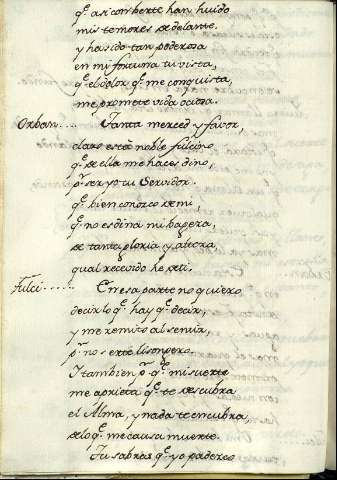 q.e asi con berte han huido
mis temores de delante.
y ha sido tan poderosa
en mi fortuna tu vista,
q.e el dolor q.e me conquista,
me promete vida ociosa.
Orban.... Tanta merced y favor,
claro está noble fulcino
q.e de ella me haces dino,
p.r ser yo tu Servidor.
q.e bien conozco de mi,
q.e no es dina mi bageza,
de tanta gloria y alteza,
qual recevido he de ti.
Fulci..... En esa parte no quiero
decir lo q.e hay q.e decir,
y me remito al sentir,
p.r no serte lisongero.
Y tambien p.r q.e mi suerte
me aprieta q.e te descubra
el Alma, y nada te encubra,
de lo q.e me causa muerte.
Tu sabras q.e yo padezco